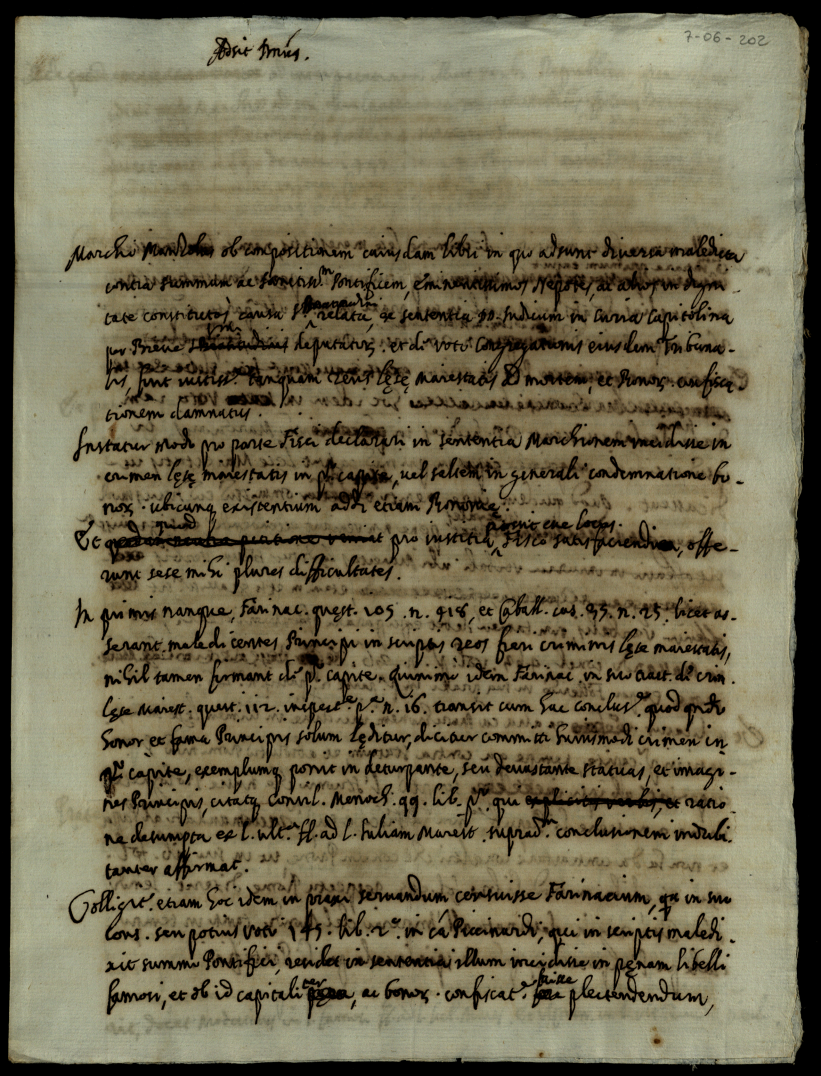 7-06-202
Adsit Dnus.
Marchio ob compositionem cuiusdam libri in quo adsunt diversa maledicta
contra summum ac Pontificem, eminentissimos Nepotes, ac alios in digni-
tate constitutos causa relata, ex sententia DD. Iudicum in Curia Capitolina
per Breve deputator. et de voto Congregationis eiusdem Tribuna-
lis, fuit tanquam reus lęsę maiestatis ad mortem, et bonor. confisca-
tionem damnatus.
Instatur modo pro parte Fisci declarari in sententia Marchionem incidisse in
crimen lęsę maiestatis in pº capite, vel saltem in generali condemnatione bo-
nor. ubicunq existentium addi etiam
Et quod pro iustitia Fisco satisfaciendum, offe-
runt sese mihi plures difficultates.
In primis nanque, Farinac. quęst. 105. n. et Caball. cas. n. 25. licet as-
serant maledicentes Principi in scriptis reos fieri criminis lęsę maiestatis,
nihil tamen firmant de pº capite. quinimo idem Farinac. in suo tract. de crim.
lęsę Maiest. quest. 112. inspect.e pª n. 16. transit cum hac conclus.e quod qndo
honor et fama Principis solum lęditur, dicitur committi huiusmodi crimen in
capite, exemplumq ponit in deturpante, seu devastante statuas, et imagi-
nes Principis, citatq Consil. Menoch. 99. lib. pº qui et ratio-
ne desumpta ex l. ult.a ff. ad l. Iuliam Maiest. suprad.m conclusionem indubi-
tanter affirmat.
Colligit.r etiam hoc idem in praxi servandum censuisse Farinacium, qa in suo
cons. seu potius voto lib. 2º in cª Piccinardi, qui in scriptis maledi-
xit summo Pontifici, residet in sententia illum incidisse in pęnam libelli
famosi, et ob id capitaliter, ac bonor. confiscat.e fuisse plectendendum,